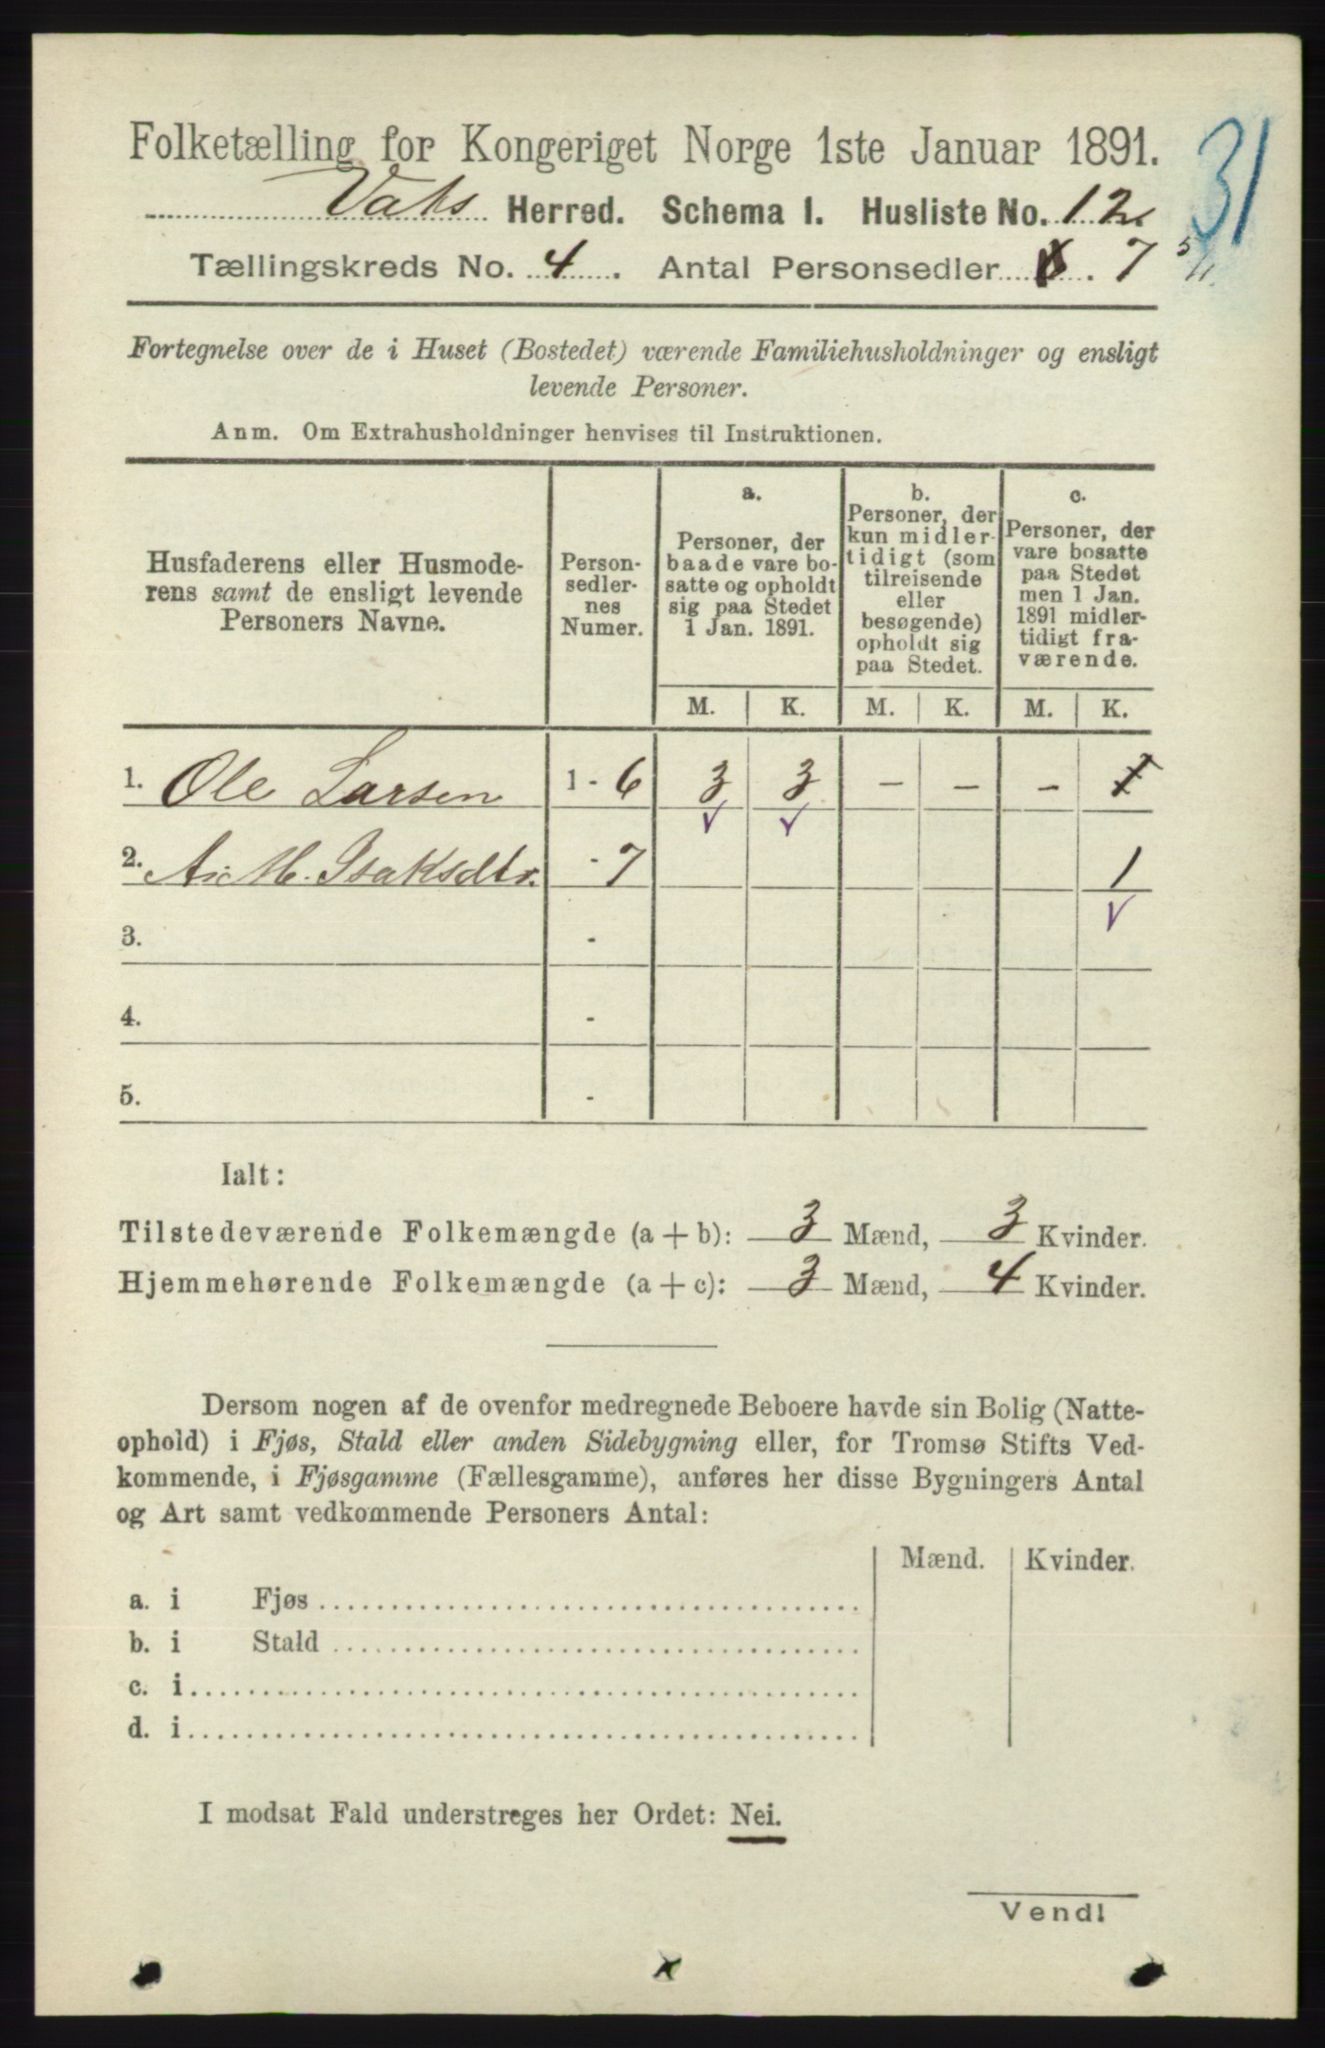 Folketælling for Kongeriget Norge 1ste Januar 1891.
31
Vats Herred. Schema I. Husliste No. 12.
Tællingskreds No. 4. Antal Personsedler 7 5/11.
Fortegnelse over de i Huset (Bostedet) værende Familiehusholdninger og ensligt
levende Personer.
Anm. Om Extrahusholdninger henvises til Instruktionen.
Husfaderens eller Husmode-
rens samt de ensligt levende
Personers Navne.
Person-
sedler-
nes
Numer.
a.
Personer, der
baade vare bo-
satte og opholdt
sig paa Stedet
1 Jan. 1891.
b.
Personer, der
kun midler-
tidigt (som
tilreisende
eller
besøgende)
opholdt sig
paa Stedet.
c.
Personer, der
vare bosatte
paa Stedet
men 1 Jan.
1891 midler-
tidigt fra-
værende.
M. K. M. K. M. K.
1. Ole Larsen 1 - 6 3 3 - - - 1
2. A. M. Isaksdtr. - 7 1
3. -
4. -
5. -
Ialt:
Tilstedeværende Folkemængde (a + b): 3 Mænd, 3 Kvinder.
Hjemmehørende Folkemængde (a + c): 3 Mænd, 4 Kvinder.
Dersom nogen af de ovenfor medregnede Beboere havde sin Bolig (Natte-
ophold) i Fjøs, Stald eller anden Sidebygning eller, for Tromsø Stifts Ved-
kommende, i Fjøsgamme (Fællesgamme), anføres her disse Bygningers Antal
og Art samt vedkommende Personers Antal:
Mænd. Kvinder.
a. i Fjøs
b. i Stald
c. i
d. i
I modsat Fald understreges her Ordet: Nei.
Vend!